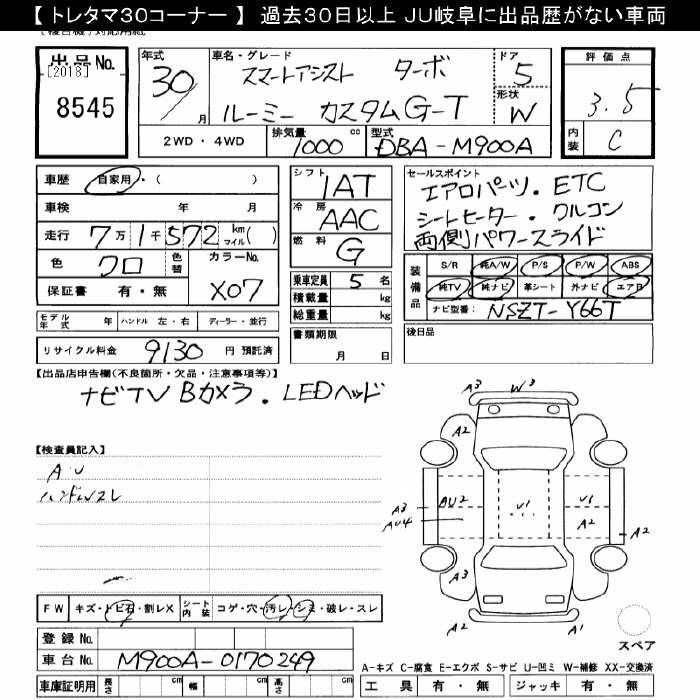 【トレタマ30コーナー】 過去30日以上 JU岐阜に出品歴がない車両
出品No.
[2018]
8545
年式 30/月
車名・グレード スマートアシスト ターボ
ルーミー カスタムG-T
ドア 5
形状 W
評価点 3.5
内装 C
2WD・4WD 排気量 1000 cc 型式 DBA-M900A
車歴 自家用・( )
車検 年 月
走行 7万1千572 km マイル( )
色 クロ 色替 カラーNo. X07
保証書 有・無
モデル年式 年 ハンドル 左・右 ディーラー・並行
リサイクル料金 9130 円 預託済
シフト 1AT
冷房 AAC
燃料 G
乗車定員 5 名
積載量 kg
総重量 kg
書類期限
月 日
セールスポイント
エアロパーツ・ETC
シートヒーター・クルコン
両側パワースライド
装備品 S/R 純A/W P/S P/W ABS
純TV 純ナビ 革シート 外ナビ エアB
ナビ型番: NSZT-Y66T
後日品
【出品店申告欄(不良箇所・欠品・注意事項等)】
ナビTV Bカメラ・LEDヘッド
【検査員記入】
AU
ハンドルスレ
A3 W3
A2
A3 AU2 U1 U1
AU4 A2 A2
A3
A2 A1
スペア
FW キズ・トビ石・割レX シート内装 コゲ・穴・汚レ・シミ・破レ・スレ
登録No.
車台No. M900A-0170249
車庫証明用 長さ cm 幅 cm 高さ cm
A-キズ C-腐食 E-エクボ S-サビ U-凹ミ W-補修 XX-交換済
工具 有・無 ジャッキ 有・無